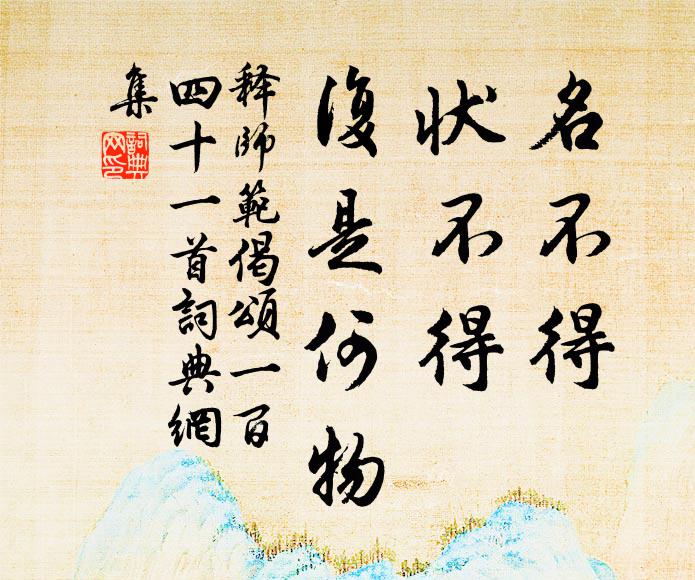 名不得
状不得
復是何物
释師範偈頌一百
四十一首詞典網
集
詞典
网印